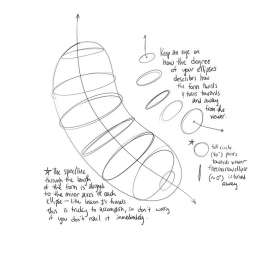 Keep the eye on
how the degree
of your ellipses
describes how
the form twists
& turns towards
and away
from the
viewer.
full circle
(90°) points
towards viewer
narrow ellipse
turned
away
★ The spine/line
through the length
of the form is aligned
to the minor axis of each
ellipse - like lesson 1's funnels
this is tricky to accomplish, so don't worry
if you don't nail it immediately